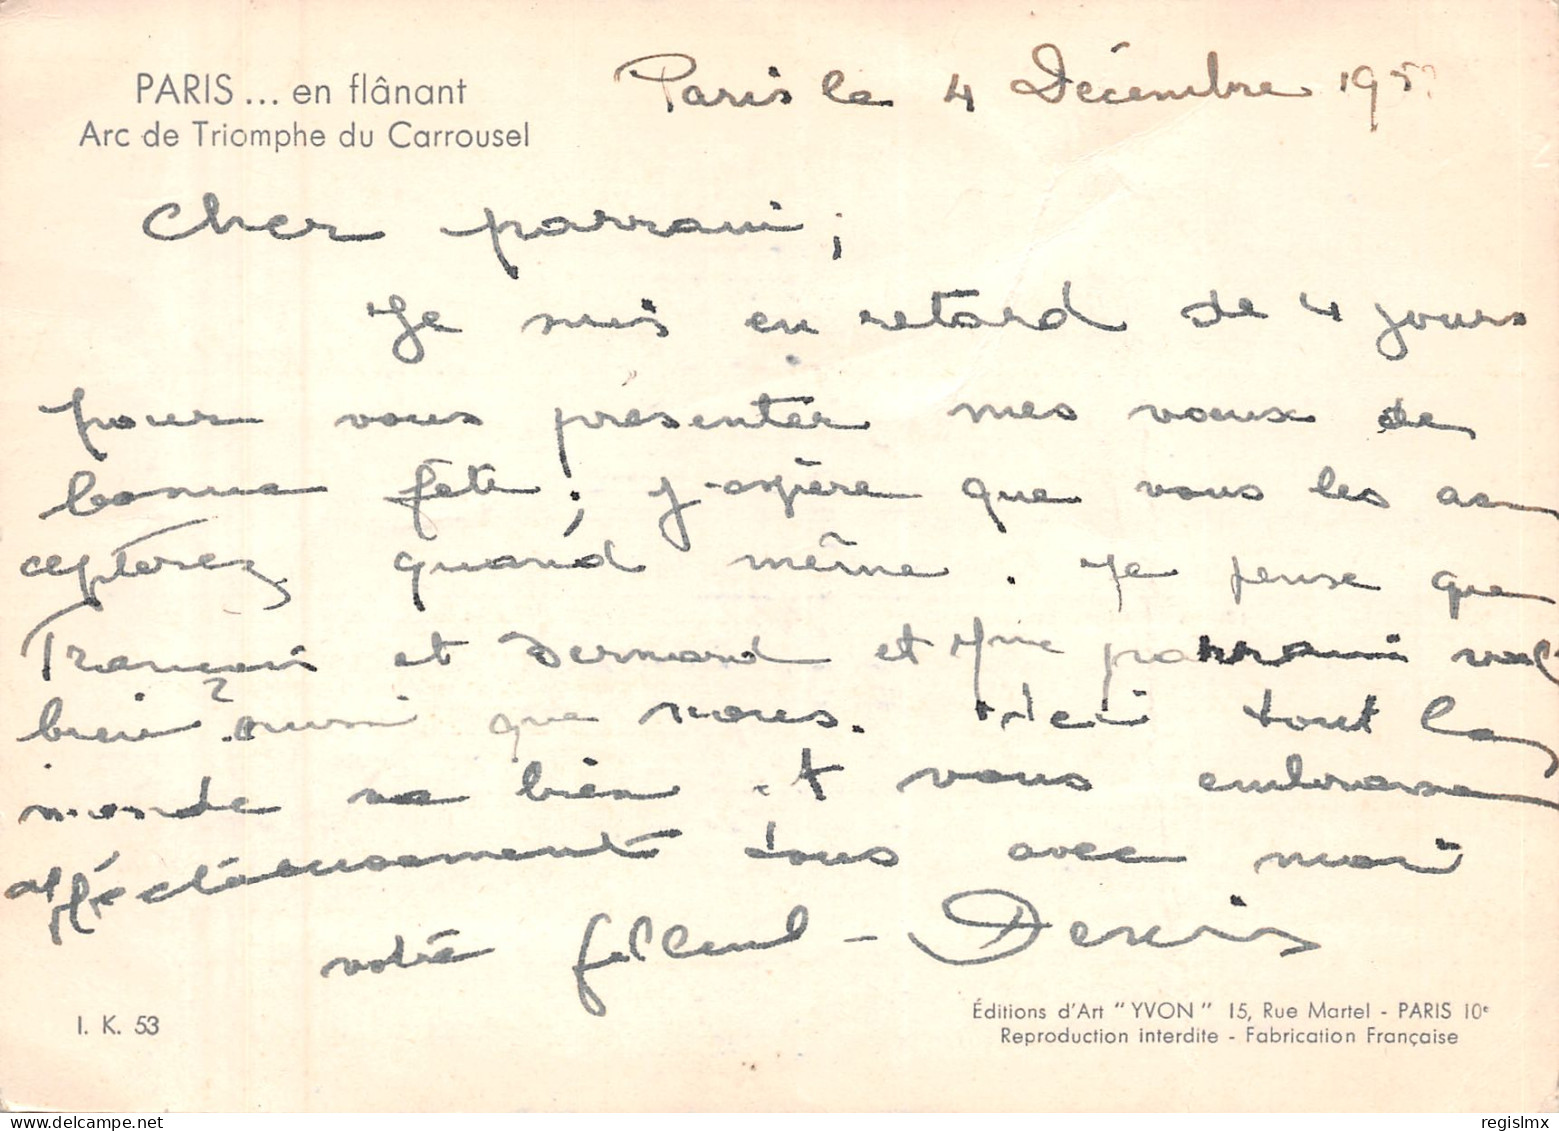 PARIS ... en flânant
Arc de Triomphe du Carrousel
Paris le 4 Décembre 195
Cher parrain;
Je suis en retard de 4 jours
pour vous présenter mes voeux de
bonne fête; j-espère que vous les ac
cepterez quand même. Je pense que
François et Bernard et que parrain vont
bien? aussi que nous. Ici tout le
monde va bien. et vous embrasse
afféctueusement tous avec moi
votre filleul - Denis
I. K. 53
Éditions d'Art "YVON" 15, Rue Martel - PARIS 10e
Reproduction interdite - Fabrication Française
regislmx